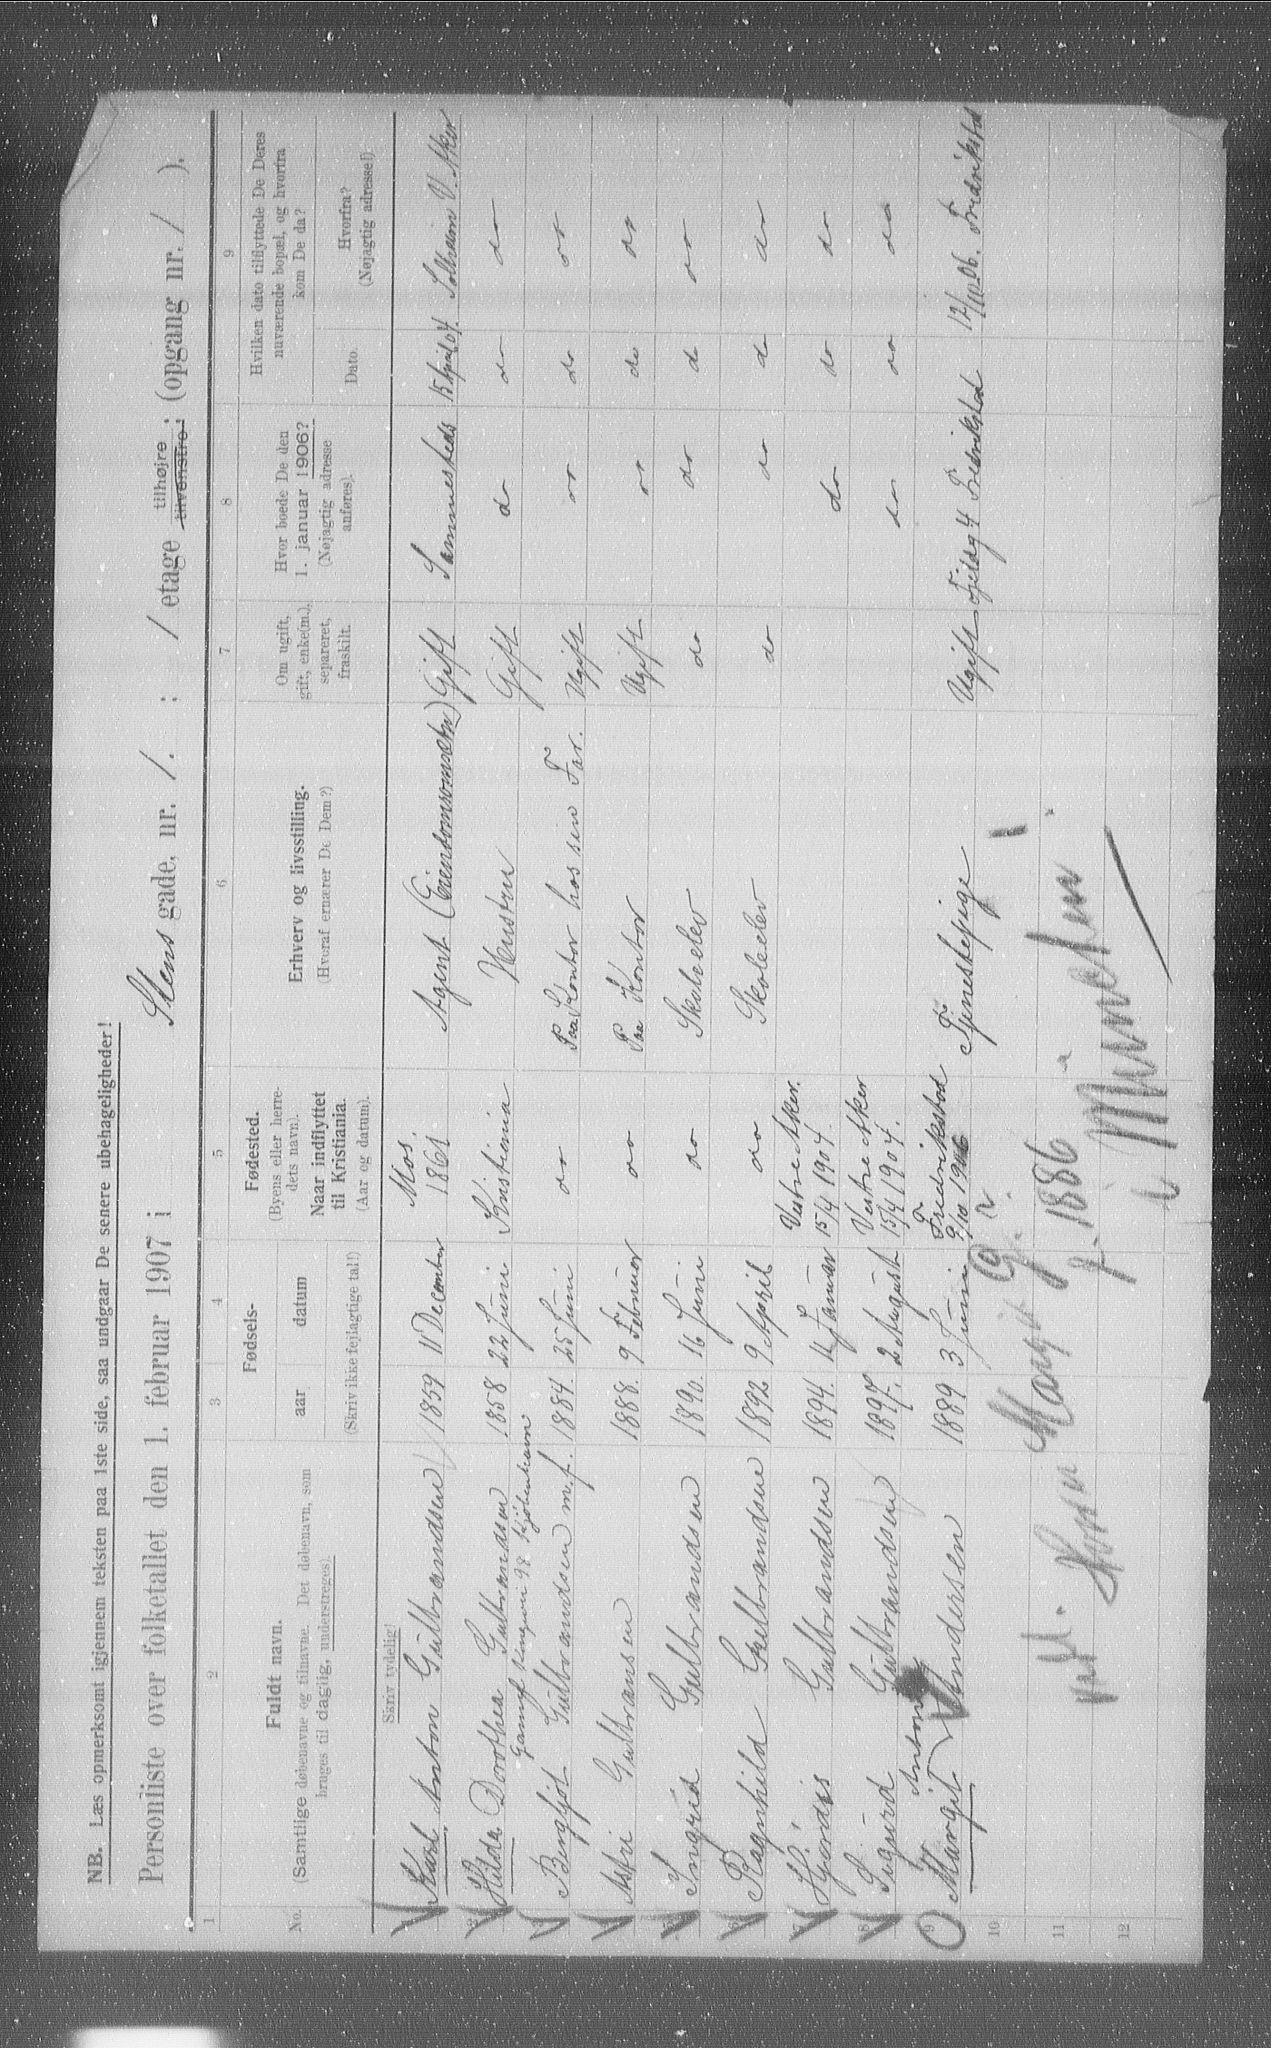 NB. Læs opmerksomt igjennem teksten paa 1ste side, saa undgaar De senere ubehageligheder!
Personliste over folketallet den 1. februar 1907 i Stens gade, nr. 1. : 1 etage tilhøjre tilvenstre ; (opgang nr. / ).
1 2 3 4 5 6 7 8 9
No.
Fuldt navn.
(Samtlige døbenavne og tilnavne. Det døbenavn, som
bruges til daglig, understreges).
Fødsels-
aar datum
(Skriv ikke fejlagtige tal!)
Fødested.
(Byens eller herre-
dets navn).
Naar indflyttet
til Kristiania.
(Aar og datum).
Erhverv og livsstilling.
(Hvoraf ernærer De Dem?)
Om ugift,
gift, enke(m.),
separeret,
fraskilt.
Hvor boede De den
1. januar 1906?
(Nøjagtig adresse
anføres).
Hvilken dato tilflyttede De Deres
nuværende bopæl, og hvorfra
kom De da?
Dato.
Hvorfra?
(Nøjagtig adresse!)
Skriv tydelig!
Karl Anton Gulbrandsen 1859 11 December Mos. 1861 Agent (Eiendomsomsætn) Gift Sammesteds 15 April 04. V. Aker
2 Hilda Dorothea Gulbrandsen 1858 22 Juni Kristiania Hustru Gift do do do
Kjøbenhavn
Bergljot Gulbrandsen m.f. 1884. 25 Juni do Paa Kontor hos sin Far. Ugift do do do
Astri Gulbransen 1888. 9 Februar do Paa Kontor Ugift do do do
5 Ingrid Gulbrandsen 1890. 16 Juni do Skoleelev do do do do
6 Ragnhild Gulbrandsen 1892 9 April do Skoleelev do do do do
7 Hjørdis Gulbrandsen 1894. Januar Vestre Aker. 15/4 1904. do do do
8 Sigurd Gulbrandsen 1897. 2 August Vestre Aker 15/4 1904. do do do
9 Margit Antonie Andersen 1889 3 Juni Fredriksstad 1906 Tjenestepige Ugift Fredrikstad 06. Fredrikstad
10
11
12
Margit
f. 1886